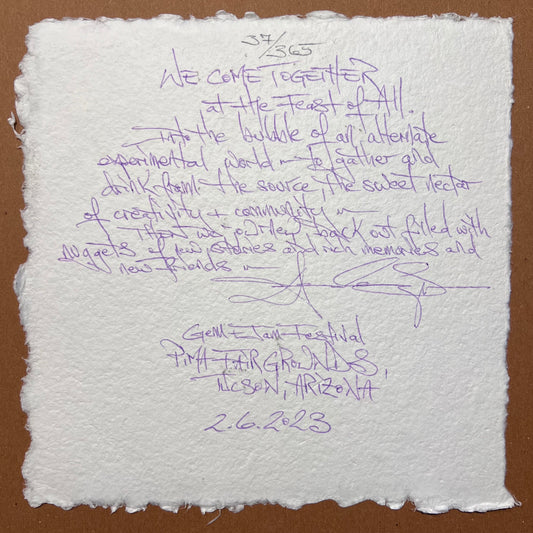 37/365
WE COME TOGETHER
at the Feast of All.
Into the bubble of an alternate
experimental world ~ to gather and
drink from the source, the sweet nectar
of creativity + community ~
That we journey back out filled with
nuggets of new stories and rich memories and
new friends ~
Gem Elam Festival
PIMA FAIRGROUNDS,
TUCSON, ARIZONA
2.6.2023